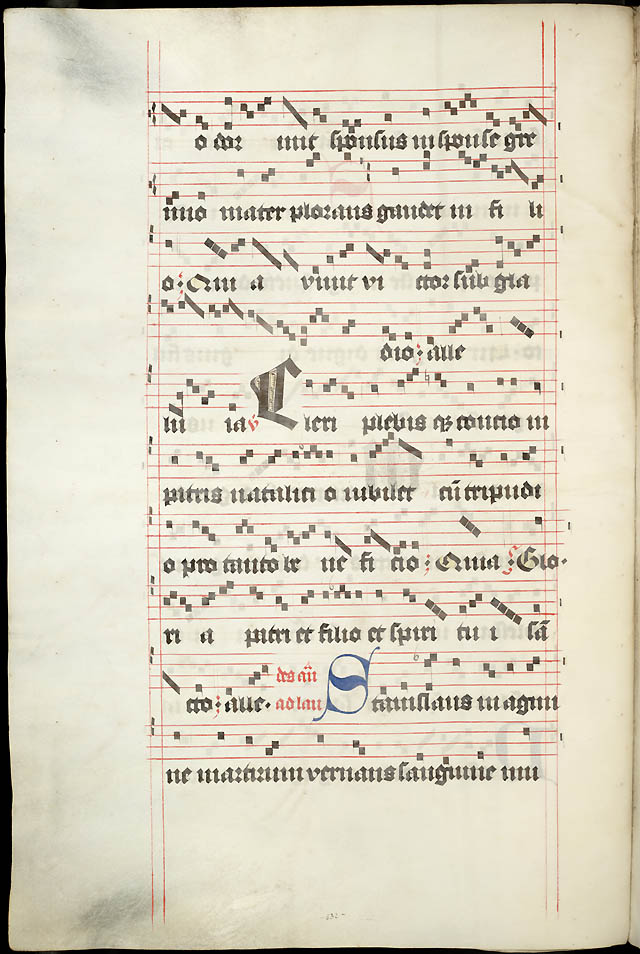 o dor mit sponsus in sponse gre
mio mater plorans gaudet in fi li
o: Quia vivit vi ctor sub gla
dio: alle
lu ia v Cleri plebis q3 concio in
patris natalici o iubilet cū tripudi
o pro tanto be ne fi cio: Quia Glo-
ri a patri et filio et spiri tu i sā
cto: alle. des
ad lau Stanislaus in agmi
ne martirum vernans sanguine mu